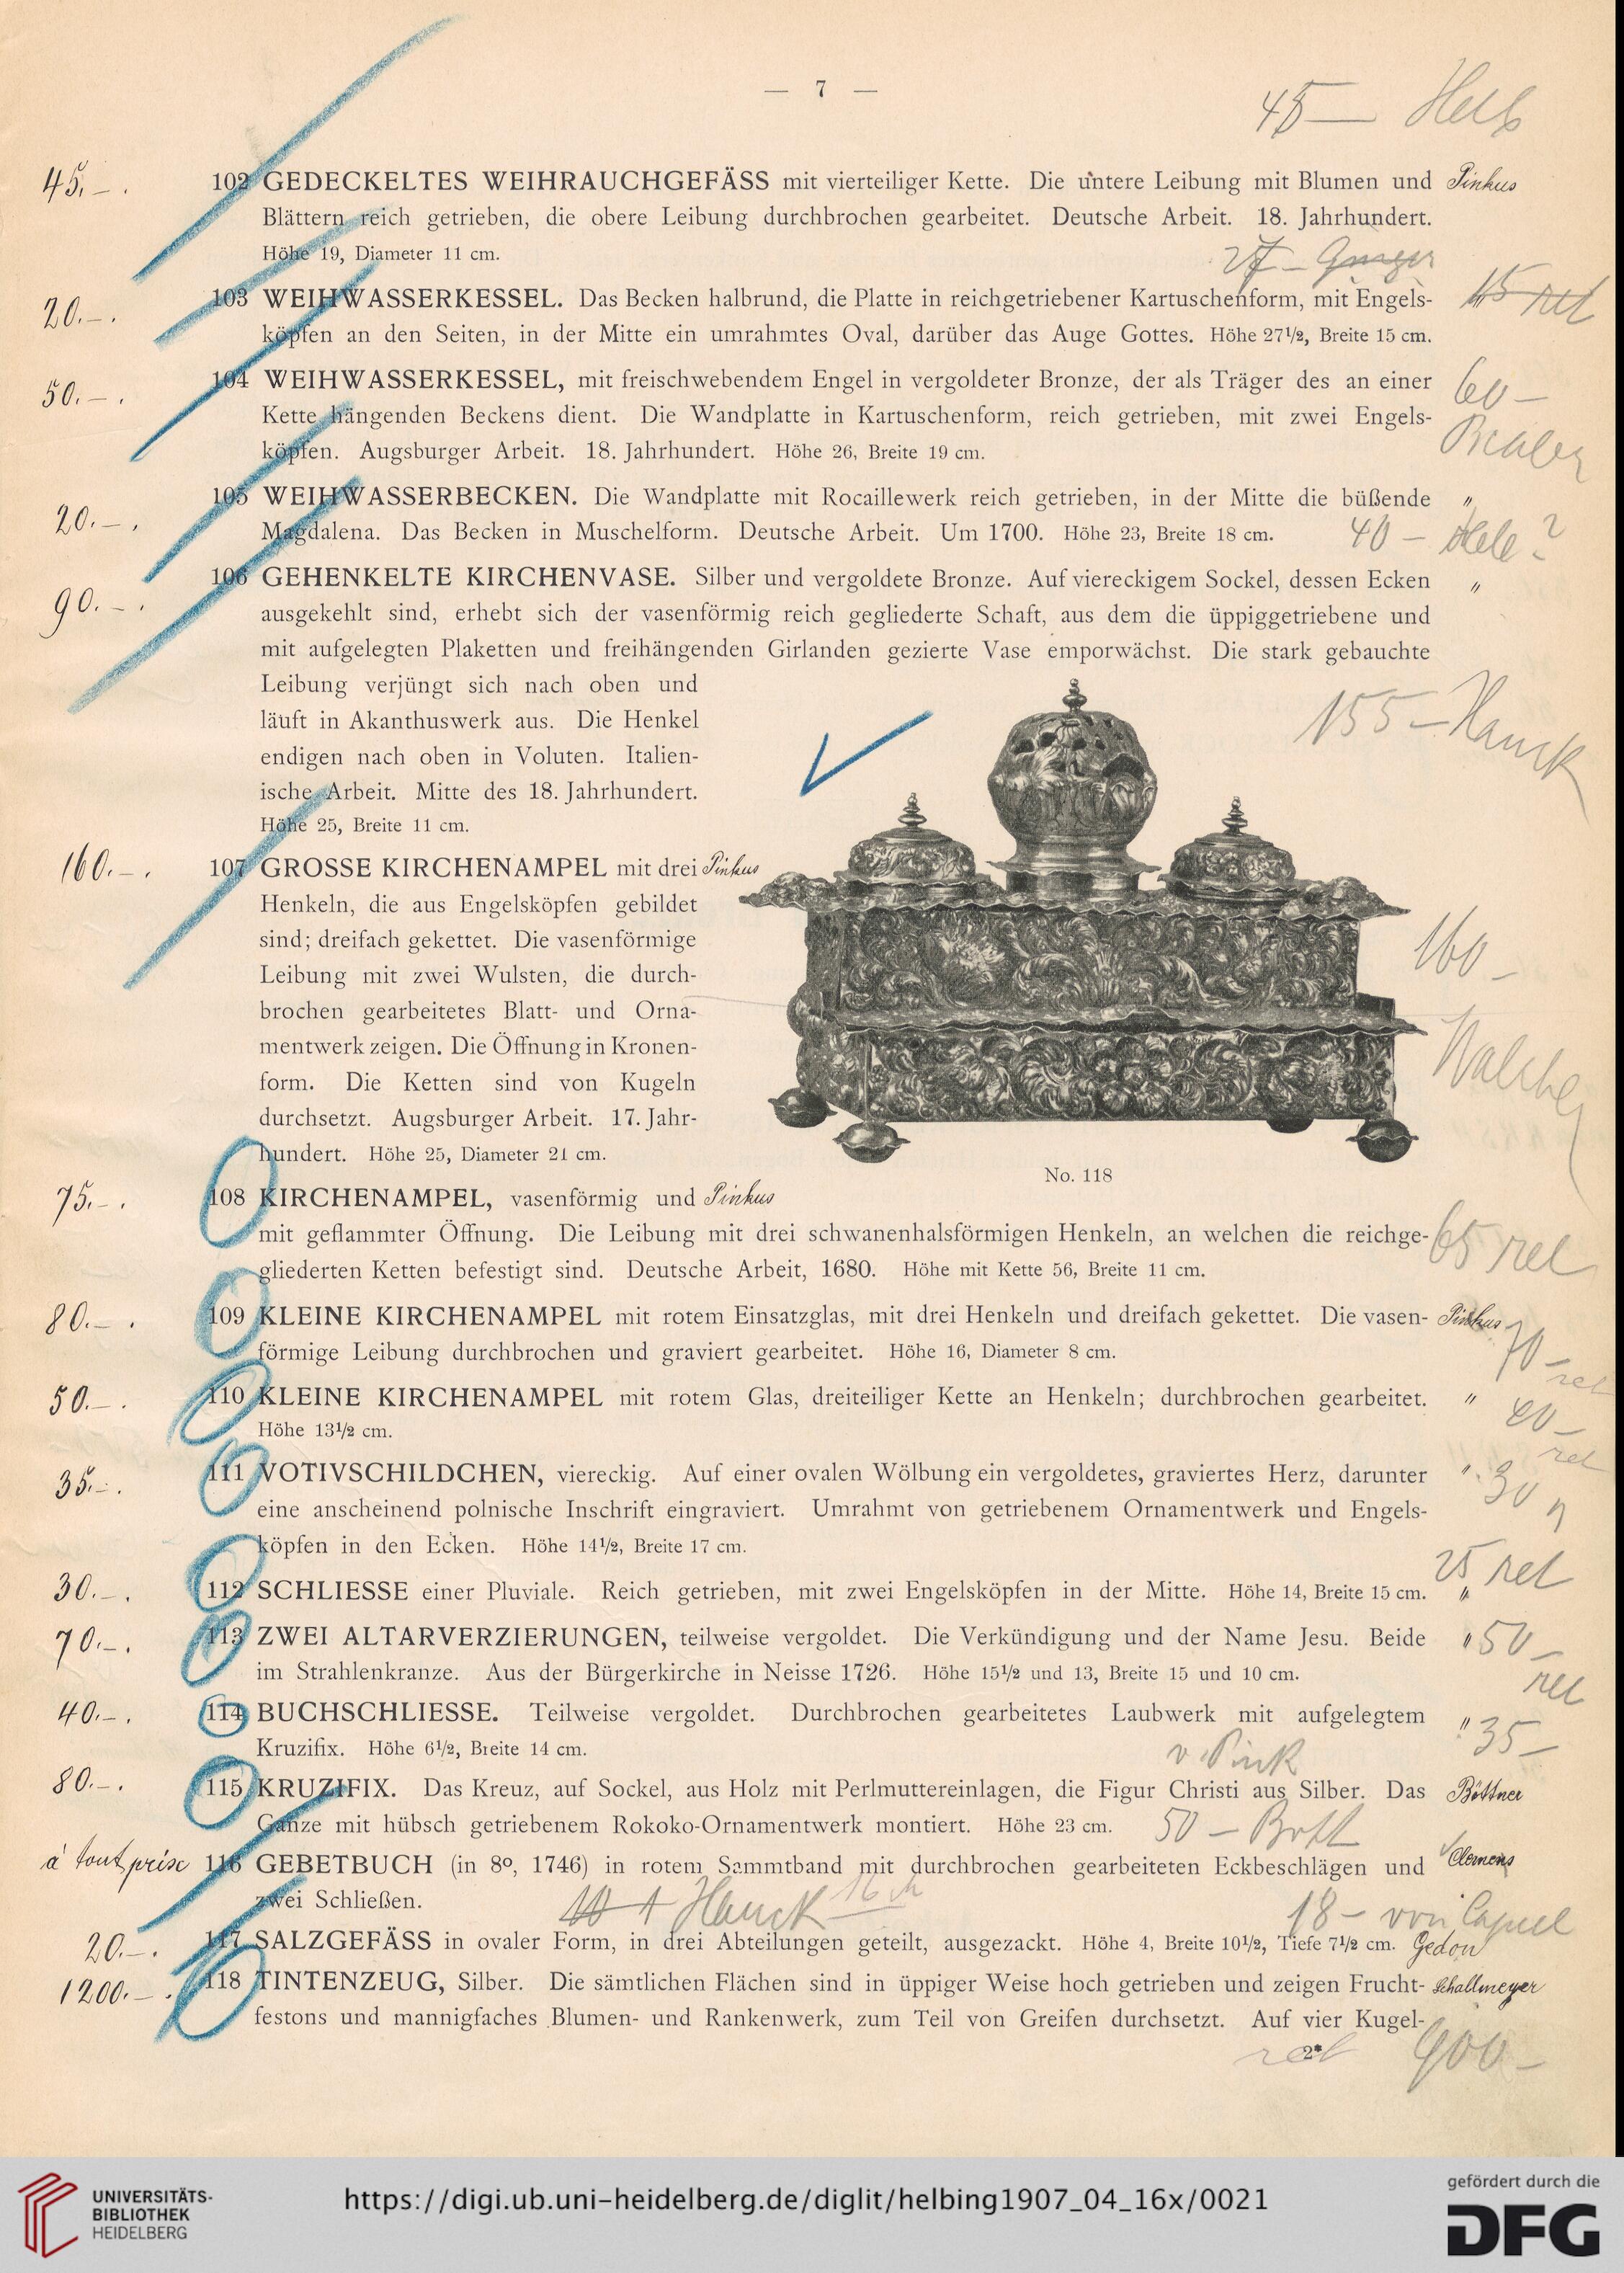 — 7 —
45 —
45.– . 102 GEDECKELTES WEIHRAUCHGEFÄSS mit vierteiliger Kette. Die untere Leibung mit Blumen und Pinkus
Blättern reich getrieben, die obere Leibung durchbrochen gearbeitet. Deutsche Arbeit. 18. Jahrhundert.
Höhe 19, Diameter 11 cm.
20.– . 103 WEIHWASSERKESSEL. Das Becken halbrund, die Platte in reichgetriebener Kartuschenform, mit Engels-
köpfen an den Seiten, in der Mitte ein umrahmtes Oval, darüber das Auge Gottes. Höhe 27½, Breite 15 cm.
50.– . 104 WEIHWASSERKESSEL, mit freischwebendem Engel in vergoldeter Bronze, der als Träger des an einer 60 –
Kette hängenden Beckens dient. Die Wandplatte in Kartuschenform, reich getrieben, mit zwei Engels-
köpfen. Augsburger Arbeit. 18. Jahrhundert. Höhe 26, Breite 19 cm.
20.– . 105 WEIHWASSERBECKEN. Die Wandplatte mit Rocaillewerk reich getrieben, in der Mitte die büßende "
Magdalena. Das Becken in Muschelform. Deutsche Arbeit. Um 1700. Höhe 23, Breite 18 cm. 40 –
90.– . 106 GEHENKELTE KIRCHENVASE. Silber und vergoldete Bronze. Auf viereckigem Sockel, dessen Ecken "
ausgekehlt sind, erhebt sich der vasenförmig reich gegliederte Schaft, aus dem die üppiggetriebene und
mit aufgelegten Plaketten und freihängenden Girlanden gezierte Vase emporwächst. Die stark gebauchte
Leibung verjüngt sich nach oben und
läuft in Akanthuswerk aus. Die Henkel
endigen nach oben in Voluten. Italien-
ische Arbeit. Mitte des 18. Jahrhundert.
Höhe 25, Breite 11 cm.
155 – Hauck
160.– . 107 GROSSE KIRCHENAMPEL mit drei Pinkus
Henkeln, die aus Engelsköpfen gebildet
sind; dreifach gekettet. Die vasenförmige
Leibung mit zwei Wulsten, die durch-
brochen gearbeitetes Blatt- und Orna-
mentwerk zeigen. Die Öffnung in Kronen-
form. Die Ketten sind von Kugeln
durchsetzt. Augsburger Arbeit. 17. Jahr-
hundert. Höhe 25, Diameter 21 cm.
160 –
No. 118
75.– . 108 KIRCHENAMPEL, vasenförmig und Pinkus
mit geflammter Öffnung. Die Leibung mit drei schwanenhalsförmigen Henkeln, an welchen die reichge- 65 rel
gliederten Ketten befestigt sind. Deutsche Arbeit, 1680. Höhe mit Kette 56, Breite 11 cm.
80.– . 109 KLEINE KIRCHENAMPEL mit rotem Einsatzglas, mit drei Henkeln und dreifach gekettet. Die vasen- Pinkus
förmige Leibung durchbrochen und graviert gearbeitet. Höhe 16, Diameter 8 cm. 70 – rel
50.– . 110 KLEINE KIRCHENAMPEL mit rotem Glas, dreiteiliger Kette an Henkeln; durchbrochen gearbeitet. "
Höhe 13½ cm. rel
35.– . 111 VOTIVSCHILDCHEN, viereckig. Auf einer ovalen Wölbung ein vergoldetes, graviertes Herz, darunter " 30
eine anscheinend polnische Inschrift eingraviert. Umrahmt von getriebenem Ornamentwerk und Engels-
köpfen in den Ecken. Höhe 14½, Breite 17 cm.
25 rel
30.– . 112 SCHLIESSE einer Pluviale. Reich getrieben, mit zwei Engelsköpfen in der Mitte. Höhe 14, Breite 15 cm. "
70.– . 113 ZWEI ALTARVERZIERUNGEN, teilweise vergoldet. Die Verkündigung und der Name Jesu. Beide " 50 –
im Strahlenkranze. Aus der Bürgerkirche in Neisse 1726. Höhe 15½ und 13, Breite 15 und 10 cm. rel
40.– . 114 BUCHSCHLIESSE. Teilweise vergoldet. Durchbrochen gearbeitetes Laubwerk mit aufgelegtem " 35 –
Kruzifix. Höhe 6½, Breite 14 cm. v. Pink
80.– . 115 KRUZIFIX. Das Kreuz, auf Sockel, aus Holz mit Perlmuttereinlagen, die Figur Christi aus Silber. Das Böttner
Ganze mit hübsch getriebenem Rokoko-Ornamentwerk montiert. Höhe 23 cm. 50 – Bött
à tout prise 116 GEBETBUCH (in 8º, 1746) in rotem Sammtband mit durchbrochen gearbeiteten Eckbeschlägen und Clemens
zwei Schließen. Hauck
18 –
20.– . 117 SALZGEFÄSS in ovaler Form, in drei Abteilungen geteilt, ausgezackt. Höhe 4, Breite 10½, Tiefe 7½ cm. Gedon
1200.– . 118 TINTENZEUG, Silber. Die sämtlichen Flächen sind in üppiger Weise hoch getrieben und zeigen Frucht- Schallmeyer
festons und mannigfaches Blumen- und Rankenwerk, zum Teil von Greifen durchsetzt. Auf vier Kugel-
2* 900 –
UNIVERSITÄTS-
BIBLIOTHEK
HEIDELBERG
https://digi.ub.uni-heidelberg.de/diglit/helbing1907_04_16x/0021
gefördert durch die
DFG